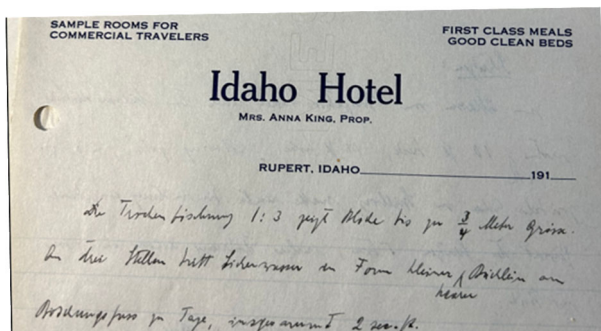 SAMPLE ROOMS FOR
COMMERCIAL TRAVELERS
FIRST CLASS MEALS
GOOD CLEAN BEDS
Idaho Hotel
MRS. ANNA KING, PROP.
RUPERT, IDAHO 191
Die 1:3 zeigt bis zu 3/4 Meter Grösse.
An drei Stellen tritt Sickerwasser in Form kleiner Bächlein am
klarer
Böschungsfuss zu Tage, insgesammt 2 sec. ft.